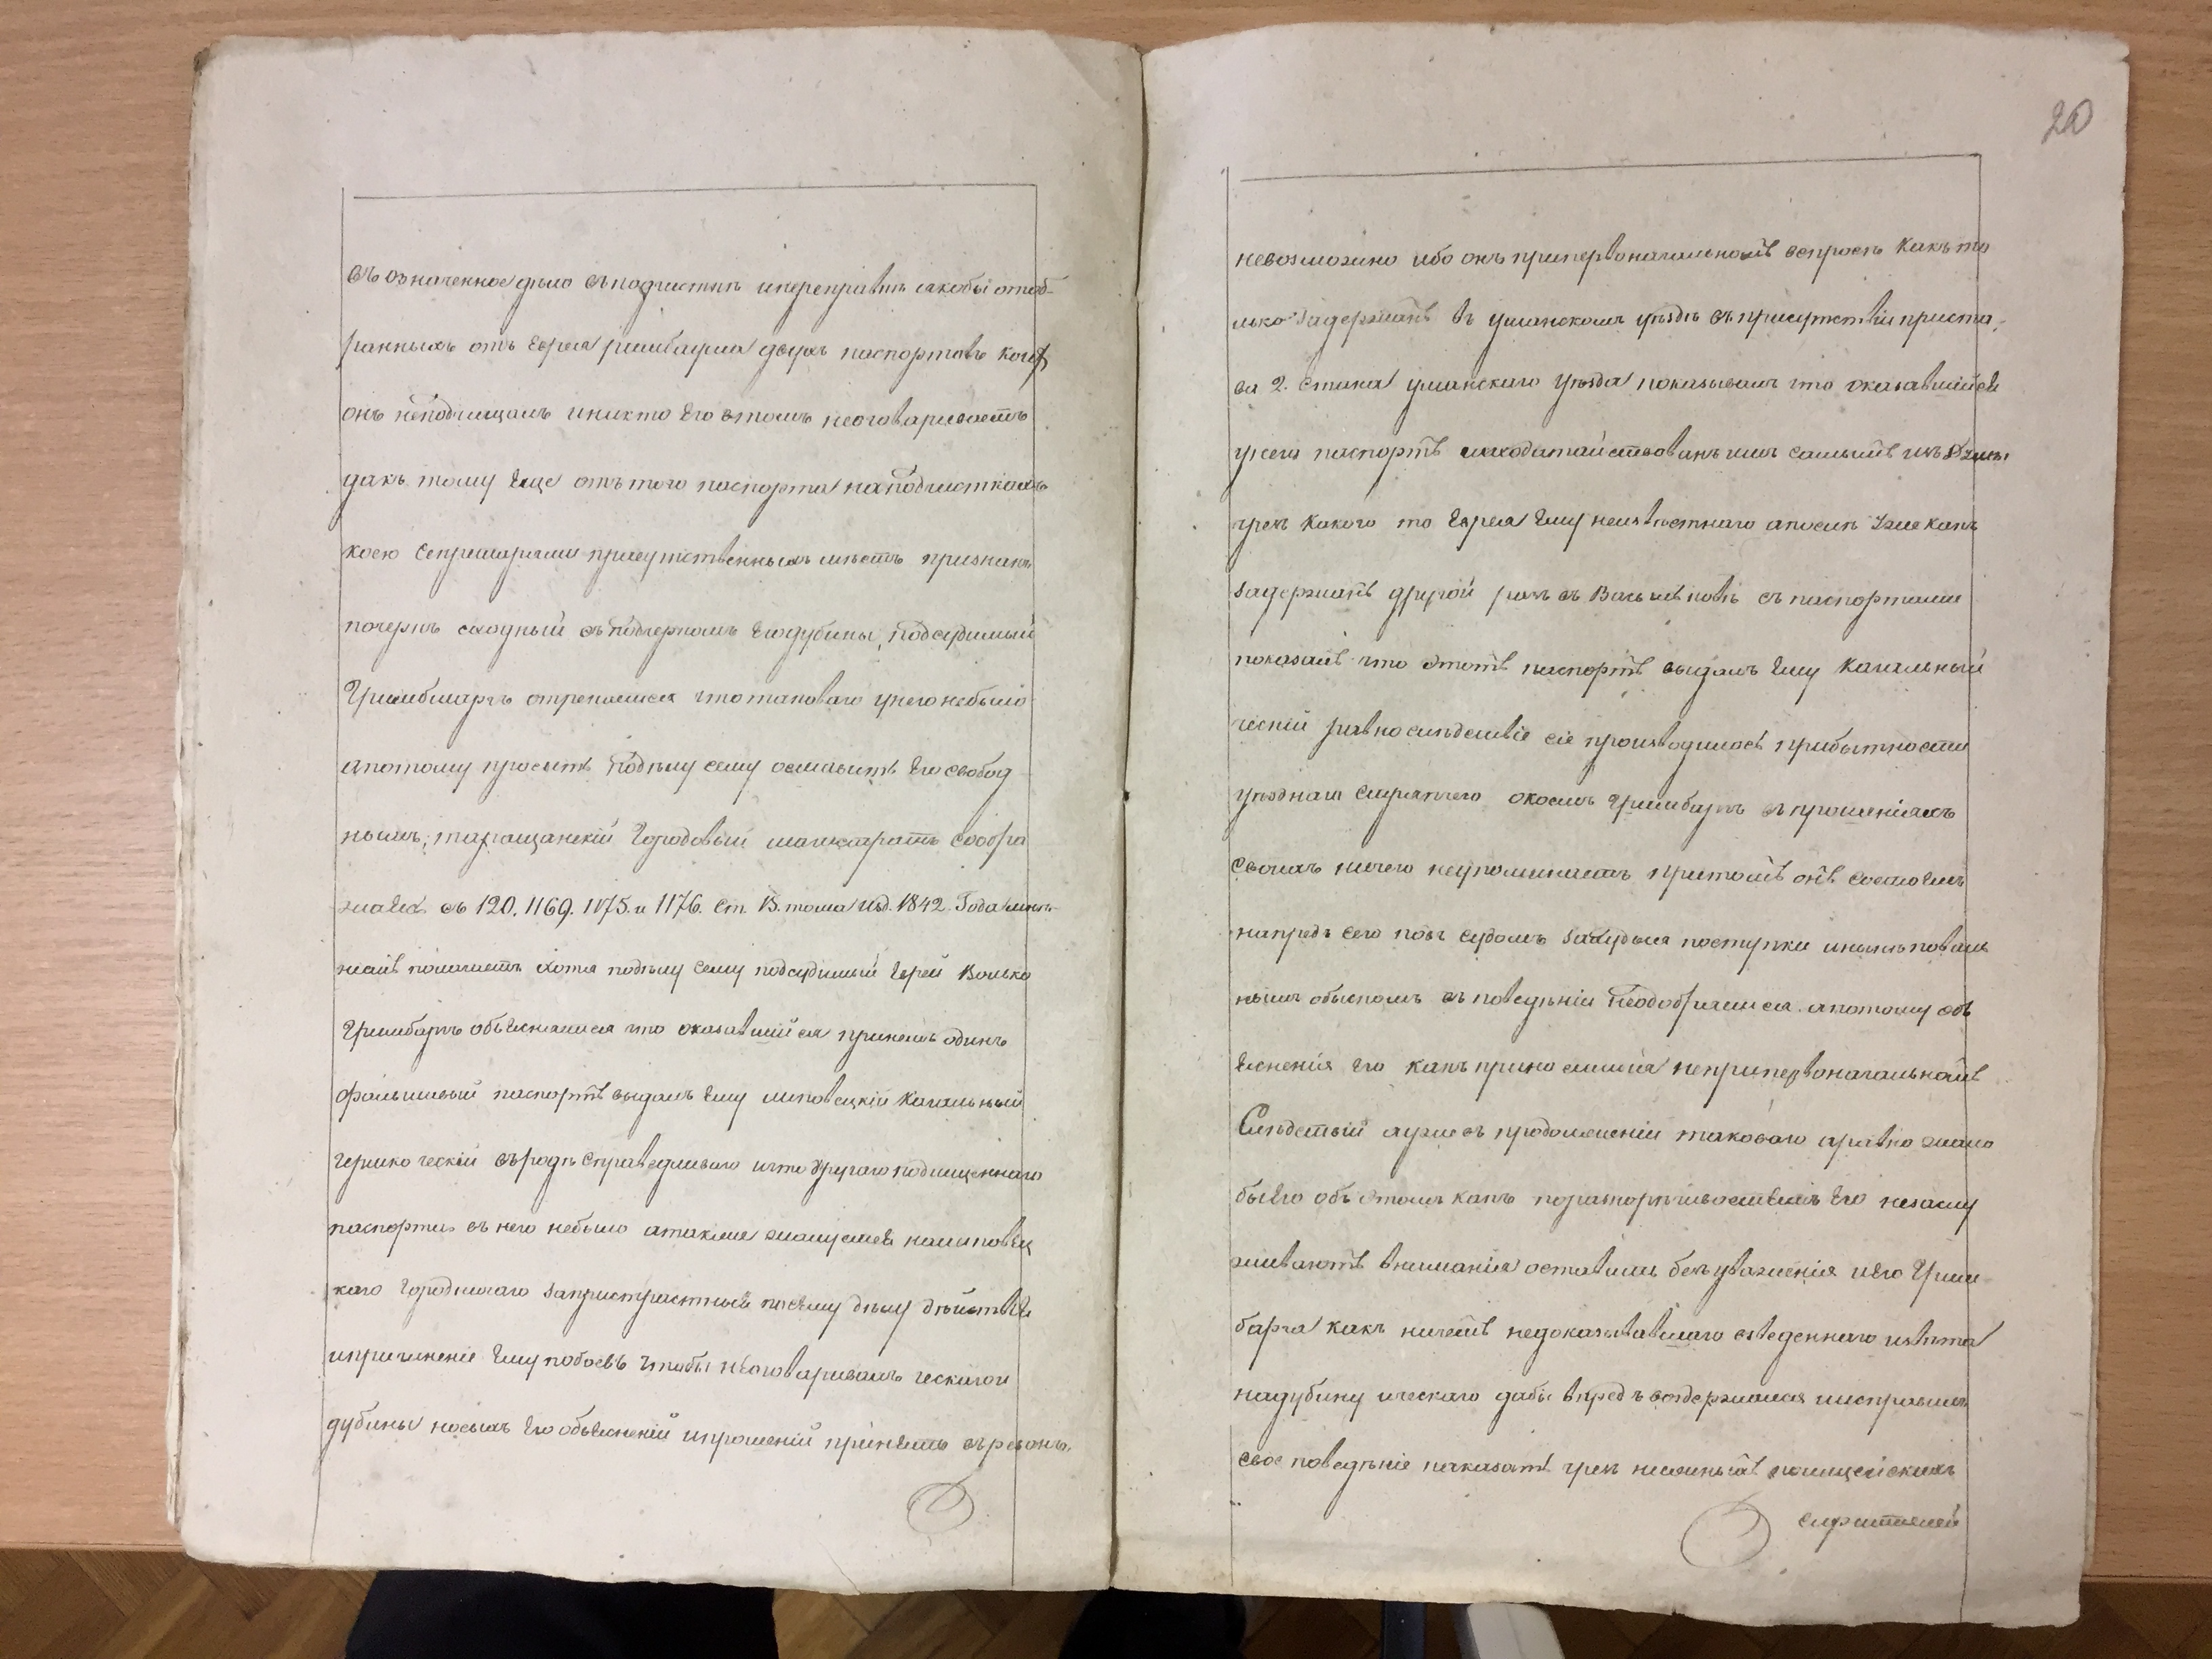 въ означенное дѣло съ подчисткъ и переправкъ якобы отоб-
ранныхъ отъ Еврея двухъ паспортовъ коихъ
онъ неподчищалъ и никто Его втомъ неоговариваетъ
дакъ тому Еще отътого паспорта наподчисткахъ
коею Секретарями присутственныхъ мѣстъ признанъ
почеркъ сходный съ почеркомъ Его дубины, подсудимый
отрекаится что таковаго унего небыло
апотому проситъ подѣлу сему оставить Его свобод
нымъ; таращанскій Городовый магистратъ сообра
жаясь съ 120. 1169. 1175. и 1176. ст. 15. тома изд. 1842. Года
полагаетъ хотя подѣлу сему подсудимый Еврей Волько
Гримбаръ объяснялися что оказавшийся принемъ одинъ
фальшивый паспортъ выдалъ Ему липовецкій Кагальный
въродѣ справедливаго ичто другаго подчищеннаго
паспорта въ него небыло атакже жалуется налиповец
каго Городничаго запристрастныя посему дѣлу дѣйствія
ипричиненіе Ему побоевъ чтобы неоговаривалъ
дубины носихъ Его объясненій ипрошеній принять въ резонъ
20
невозможно ибо онъ припервоначальномъ вспросѣ Какъ то
лько задержанъ въ уманскомъ уѣздѣ въприсутствіи приста-
ва 2. стана уманскаго Уѣзда показывалъ что оказавшійся
унего паспортъ исходатайствованъ имъ самымъ
чрезъ какого то Еврея Ему неизвѣстнаго апослѣ Уже какъ
задержанъ другой разъ въ Васильковѣ съ паспортами
показалъ что этотъ паспортъ выдалъ Ему Кагальный
равно слѣдствіе сіе производилось прибытности
уѣзднаго Стряпчего окоемъ Гримбаръ въ прошеніяхъ
своихъ ничего неупоминаетъ притомъ онъ состоялъ
напредъ сего подъ судомъ захудыя поступки инынѣ поваль
нымъ обыскомъ въ поведѣніи неодобрился. апотому объ
ясненія Его какъ приносимыя неприпервоначальномъ
Слѣдствіи ауже въ продолженіи таковаго иравно жало
бы Его объ этомъ какъ поразнорѣчивостямъ Его незаслу
живаютъ вниманія оставить безъ уваженія иЕго Грим
барга какъ ничемъ недоказывавшаго взведеннаго извѣта
надубину дабы впредъ воздержался иисправилъ
свое поведѣніе наказать чрезъ полицейскихъ
служителей